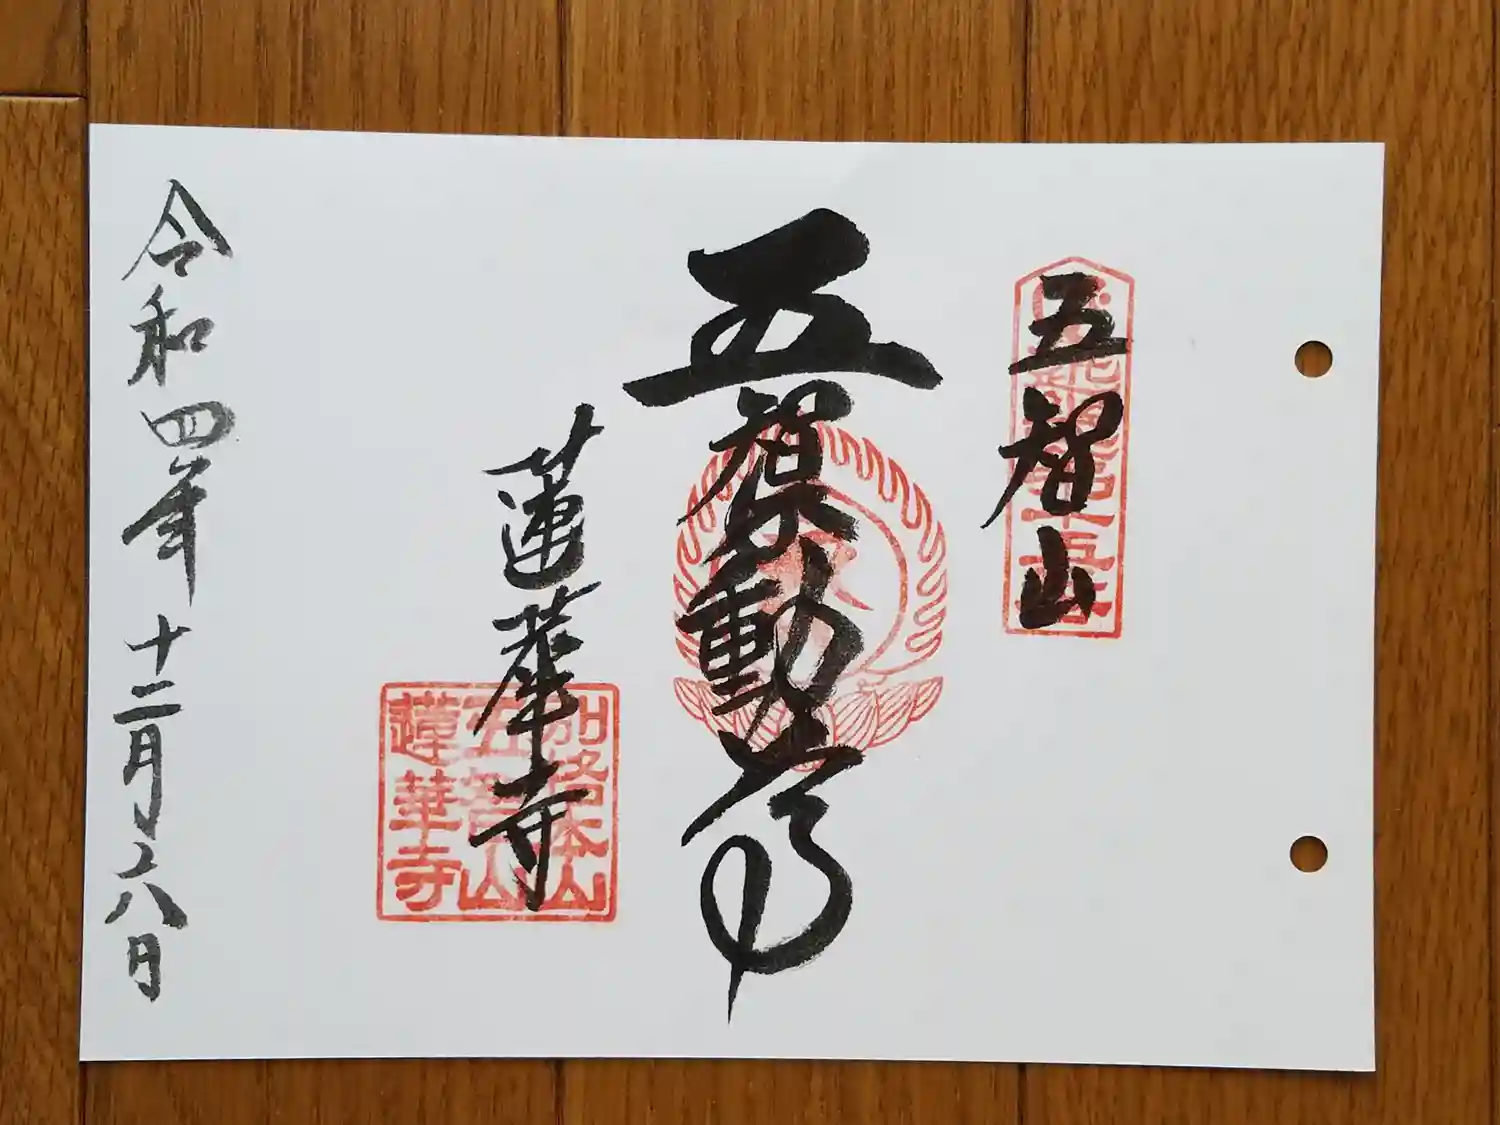 五智山
第十五番
五智不動尊
蓮華寺
別格本山
五智山
蓮華寺
令和四年十二月六日